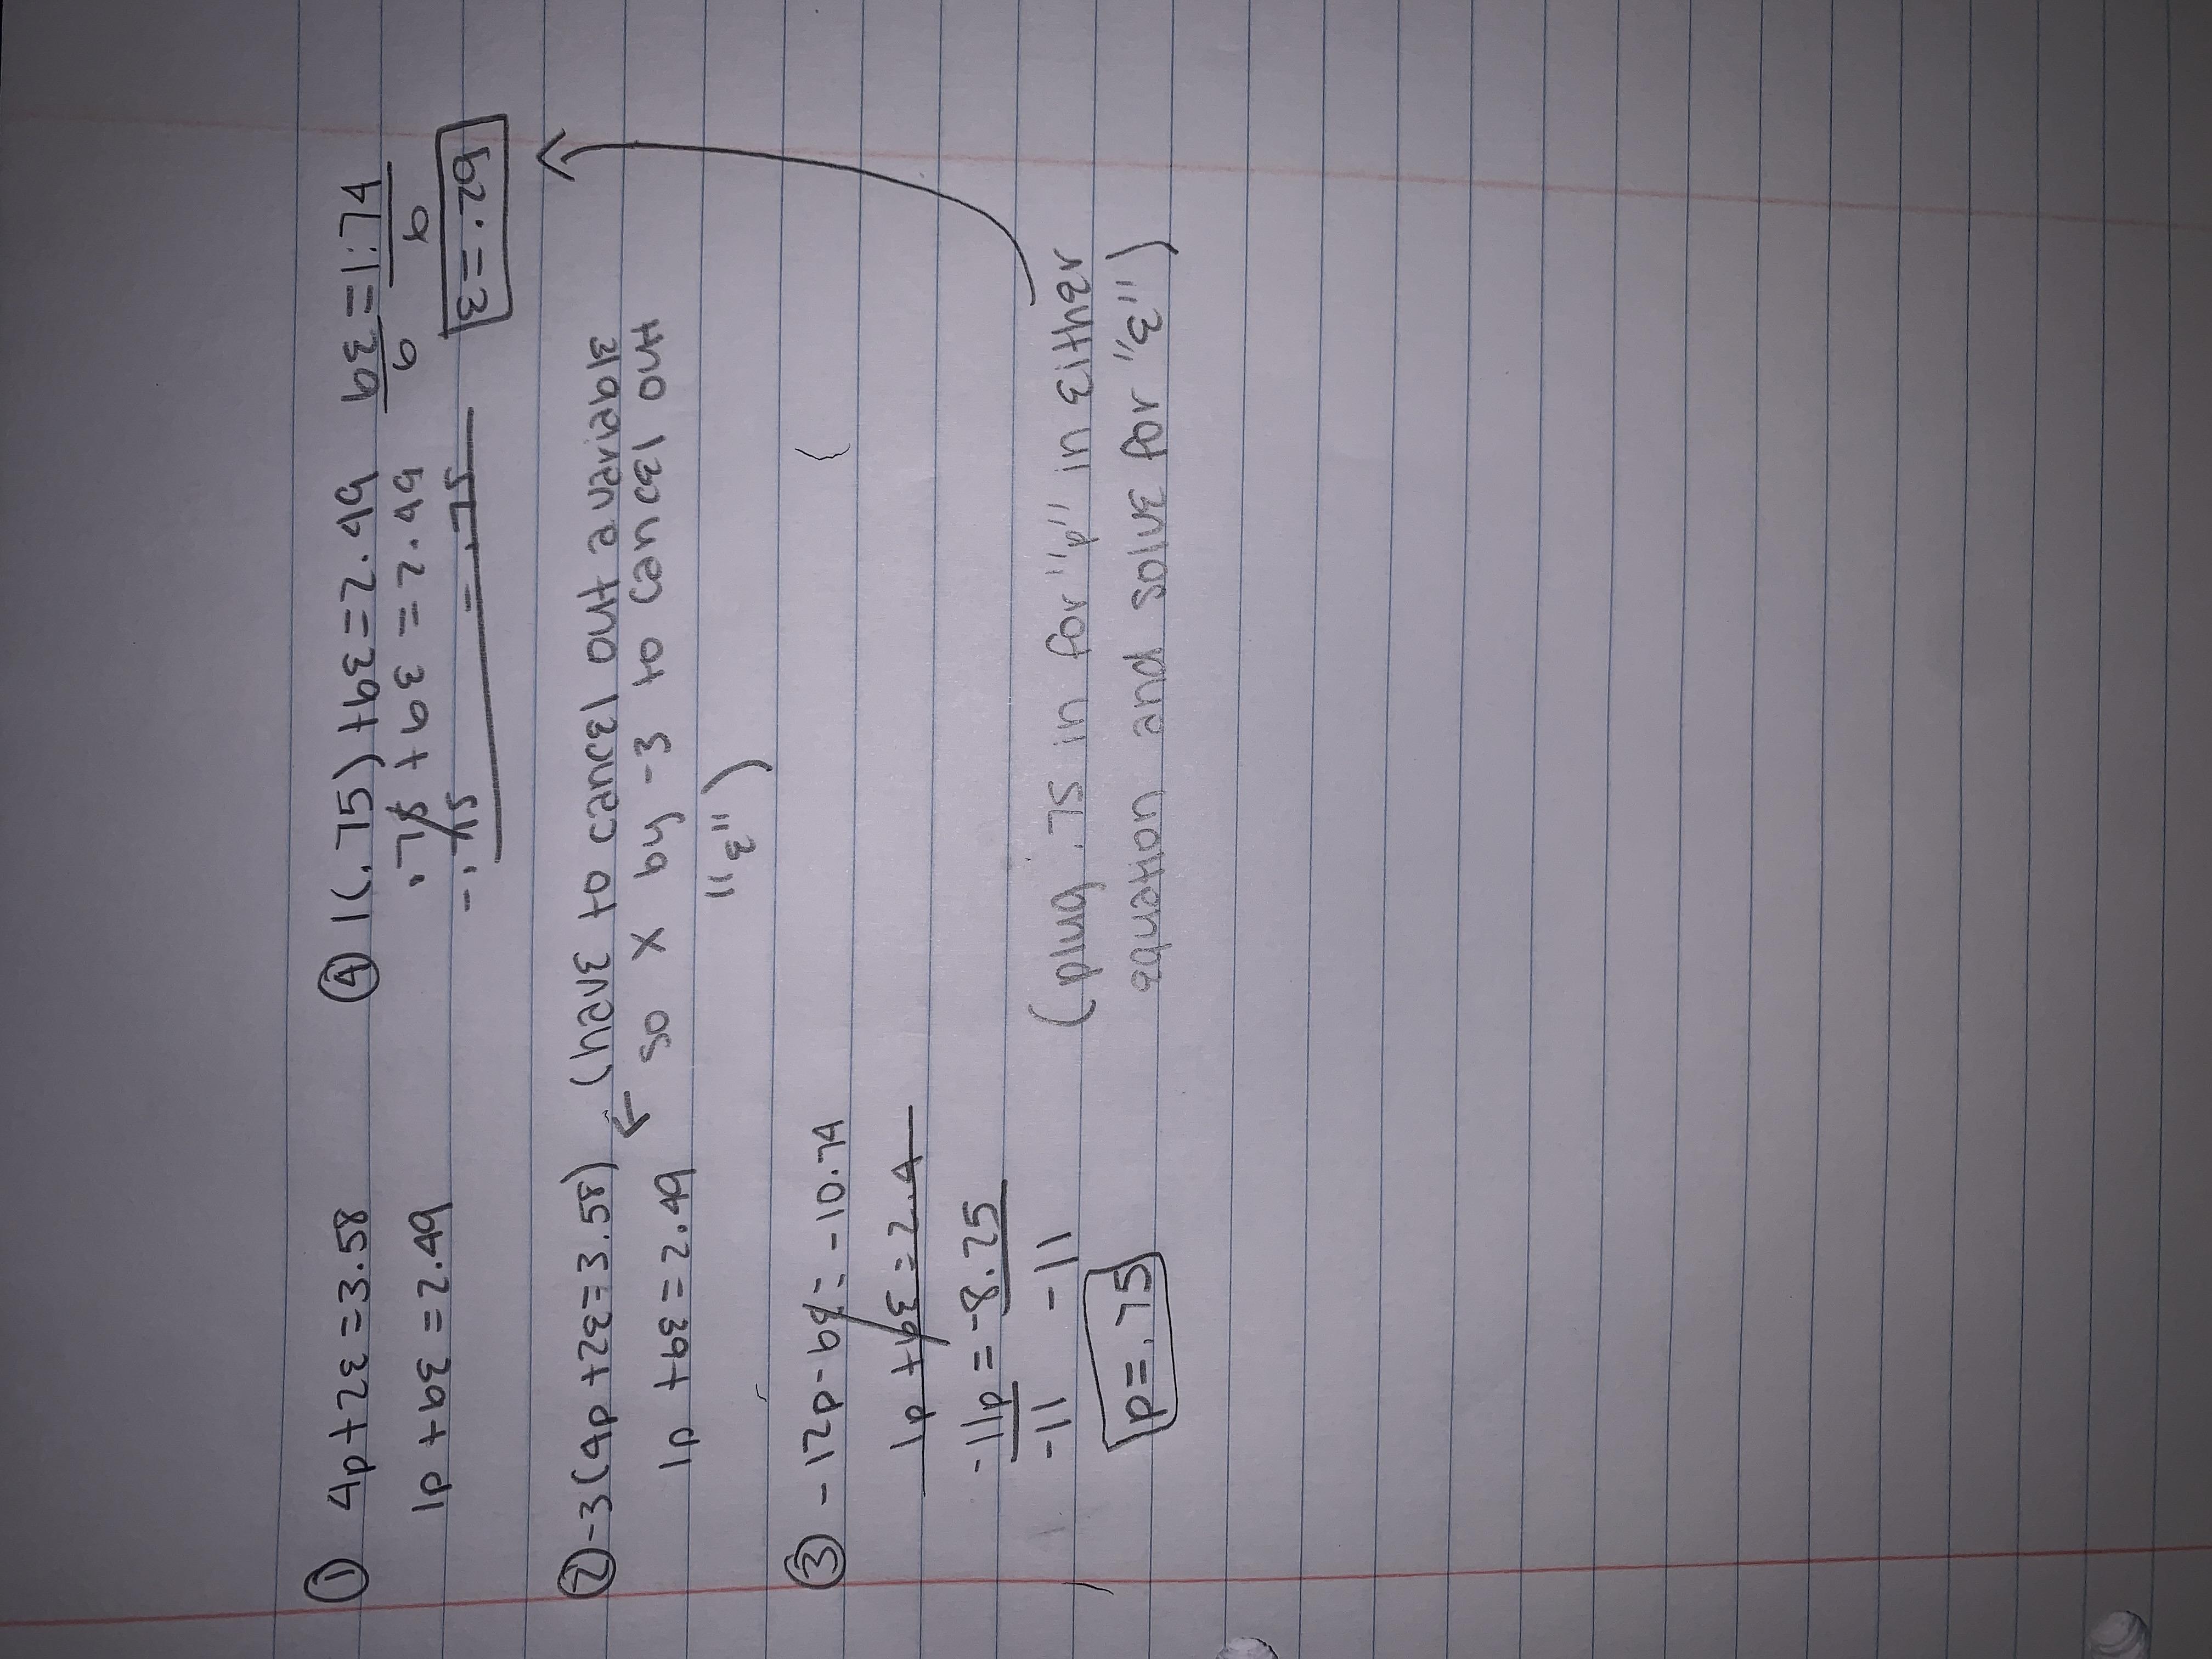 ① 4p+2e=3.58
1p+6e=2.49
② -3(4p+2e=3.58) (have to cancel out a variable
1p+6e=2.49 so x by -3 to cancel out
"e")
③ -12p-6e=-10.74
1p+6e=2.4
-11p=-8.25
-11 -11
p=.75
(plug .75 in for "p" in either
equation and solve for "e")
④ 1(.75)+6e=2.49
.75+6e=2.49
-.75 = .75
6e=1.74
6 6
e=.29